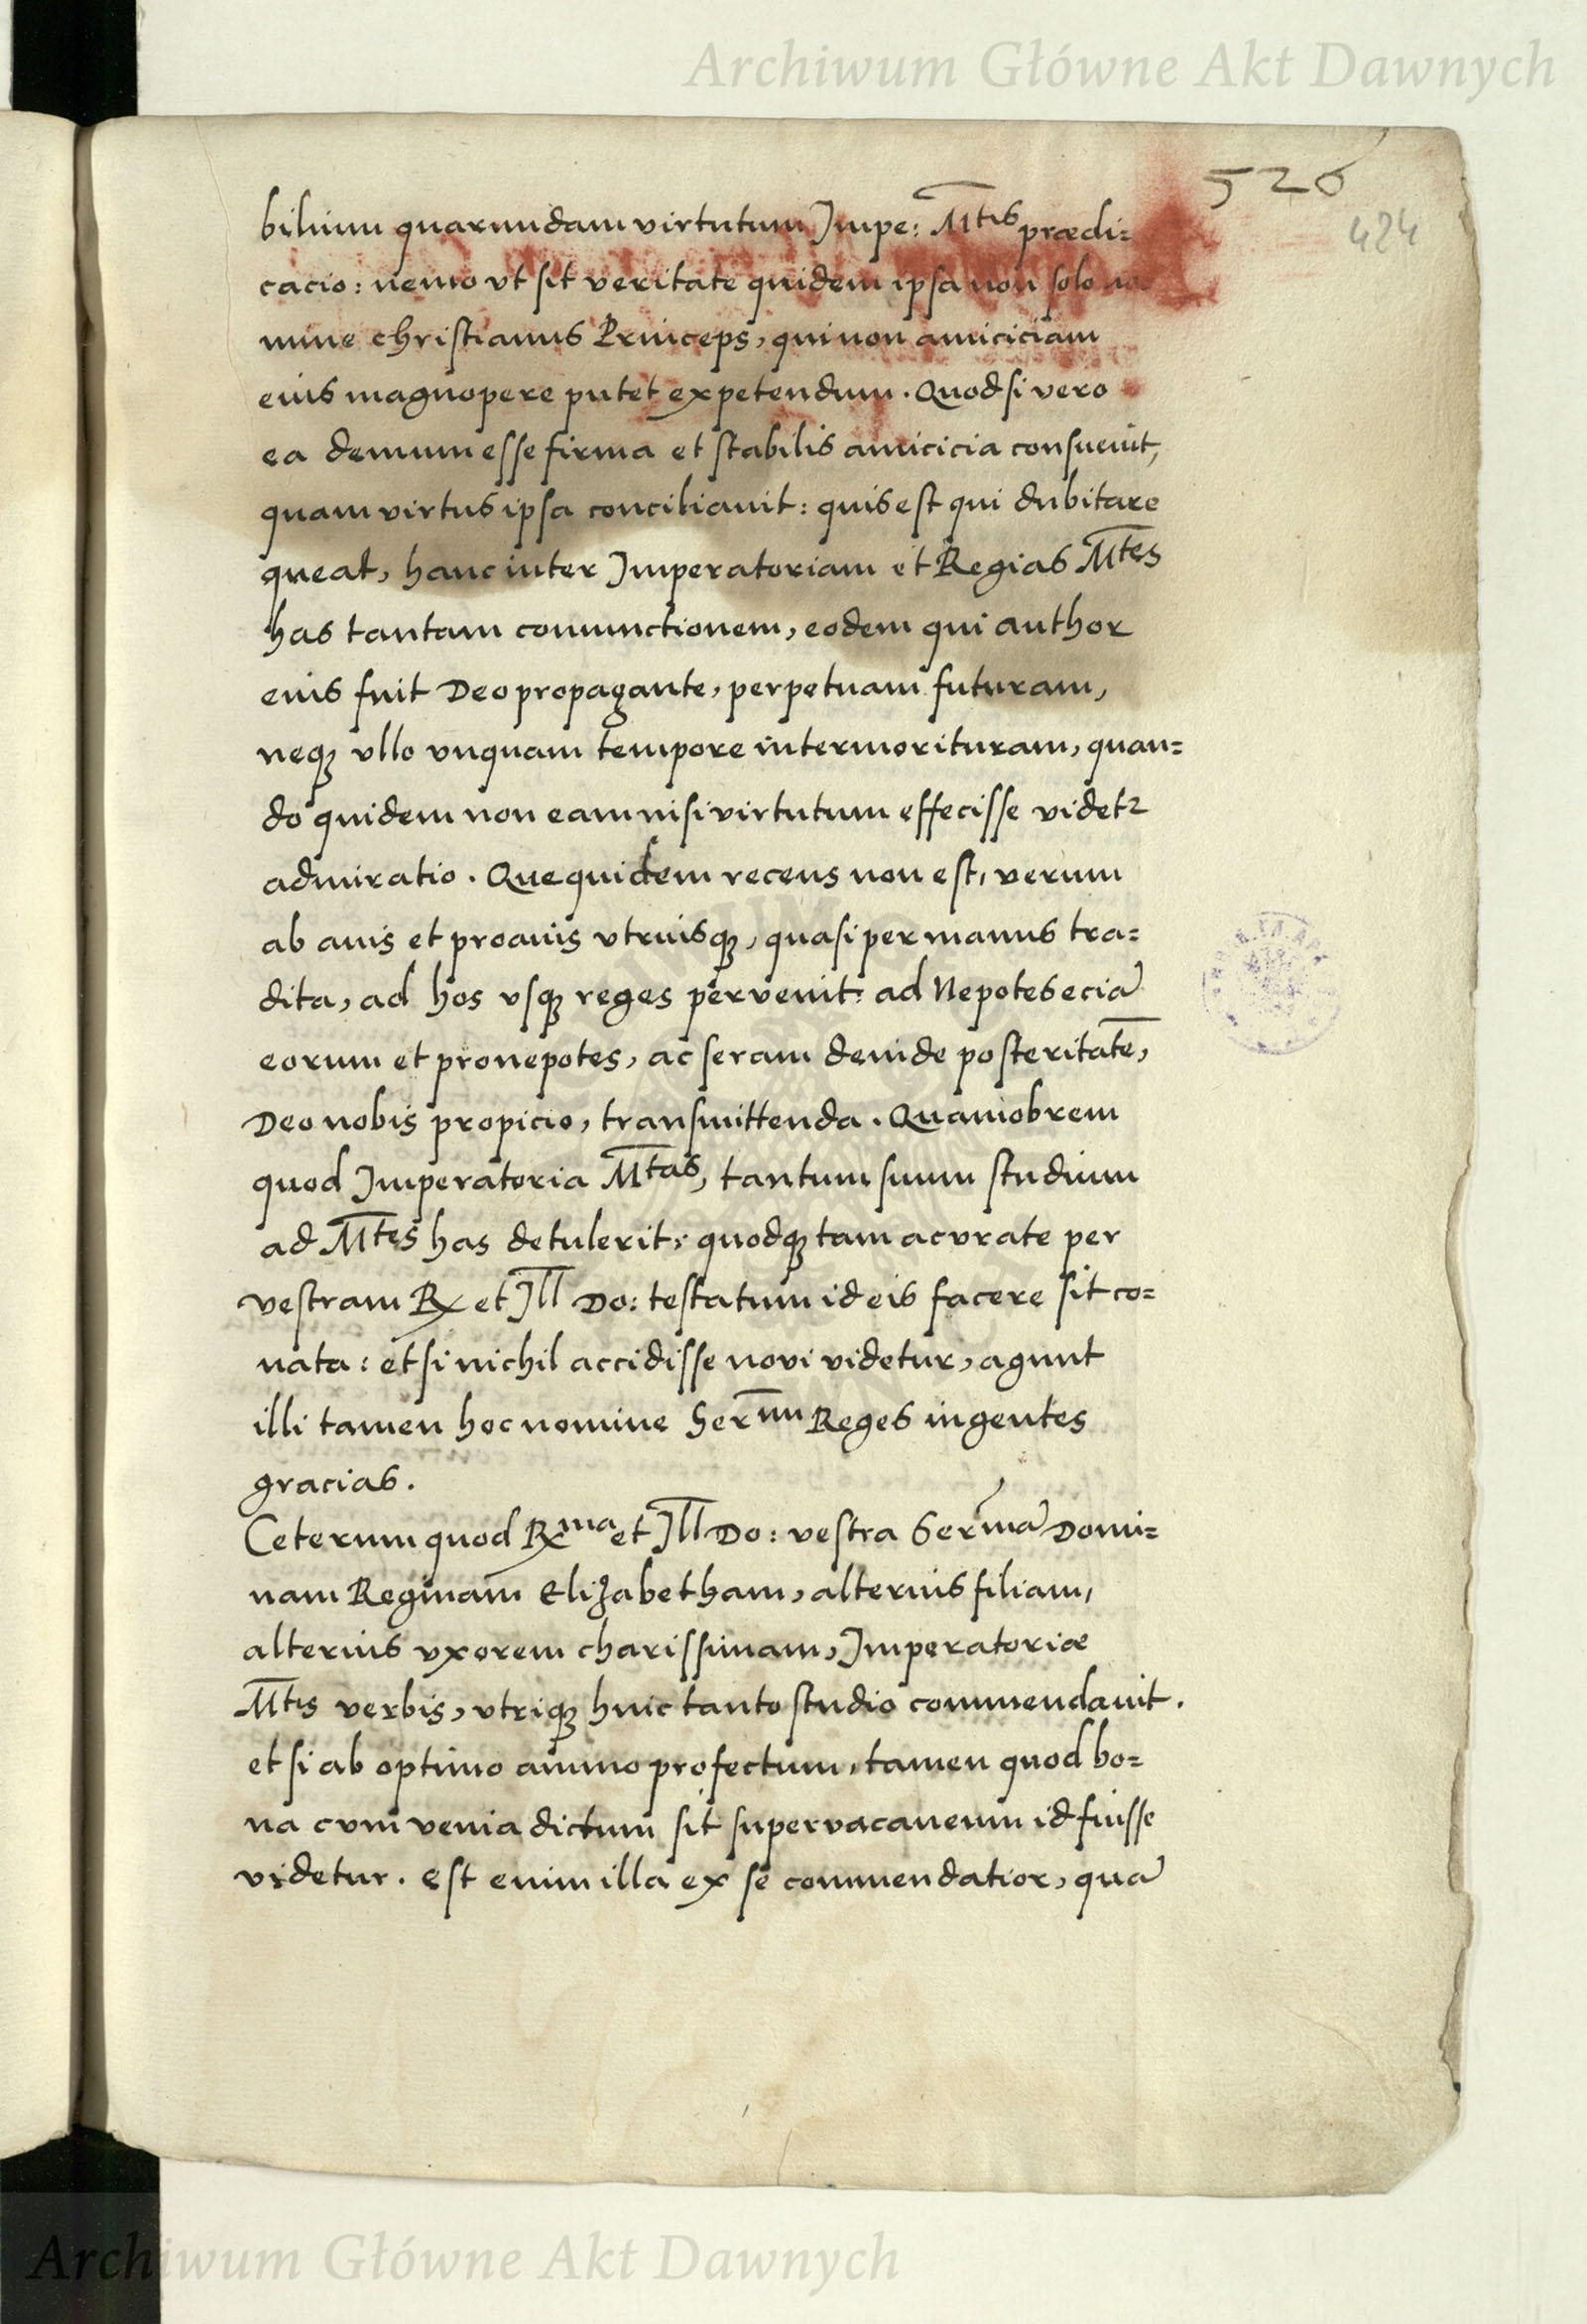 Archiwum Główne Akt Dawnych
526
424
bilium quarundam virtutum Impe: M̅tis prædi=
cacio: nemo vt sit veritate quidem ipsa non solo no
mine christianus Princeps, qui non amiciciam
eius magnopere putet expetendum. Quod si vero
ea demum esse firma et stabilis amicicia consuevit,
quam virtus ipsa conciliauit: quis est qui dubitare
queat, hanc inter Imperatoriam et Regias M̅tes
has tantam coniunctionem, eodem qui author
eius fuit Deo propagante, perpetuam futuram,
neqꝫ vllo vnquam tempore intermorituram, quan=
do quidem non eam nisi virtutum effecisse videtꝛ
admiratio. Que quidem recens non est, verum
ab auis et proauis vtriusqꝫ, quasi per manus tra=
dita, ad hos vsqꝫ reges pervenit: ad Nepotes eciā
eorum et pronepotes, ac seram deinde posteritatē,
Deo nobis propicio, transmittenda. Quamobrem
quod Imperatoria M̅tas, tantum suum studium
ad M̅tes has detulerit: quodqꝫ tam acvrate per
vestram R̅x et I̅l̅l Do: testatum id eis facere sit co=
nata: et si nichil accidisse novi videtur, agunt
illi tamen hoc nomine Serm̅i Reges ingentes
gracias.
Ceterum quod Rxma et I̅l̅l Do: vestra Sermā Domi=
nam Reginam Elizabetham, alterius filiam,
alterius vxorem charissimam, Imperatoriæ
M̅tis verbis, vtriqꝫ huic tanto studio commendauit.
et si ab optimo animo profectum, tamen quod bo=
na cvm venia dictum sit supervacaneum id fuisse
videtur. Est enim illa ex se commendatior, quā
Archiwum Główne Akt Dawnych